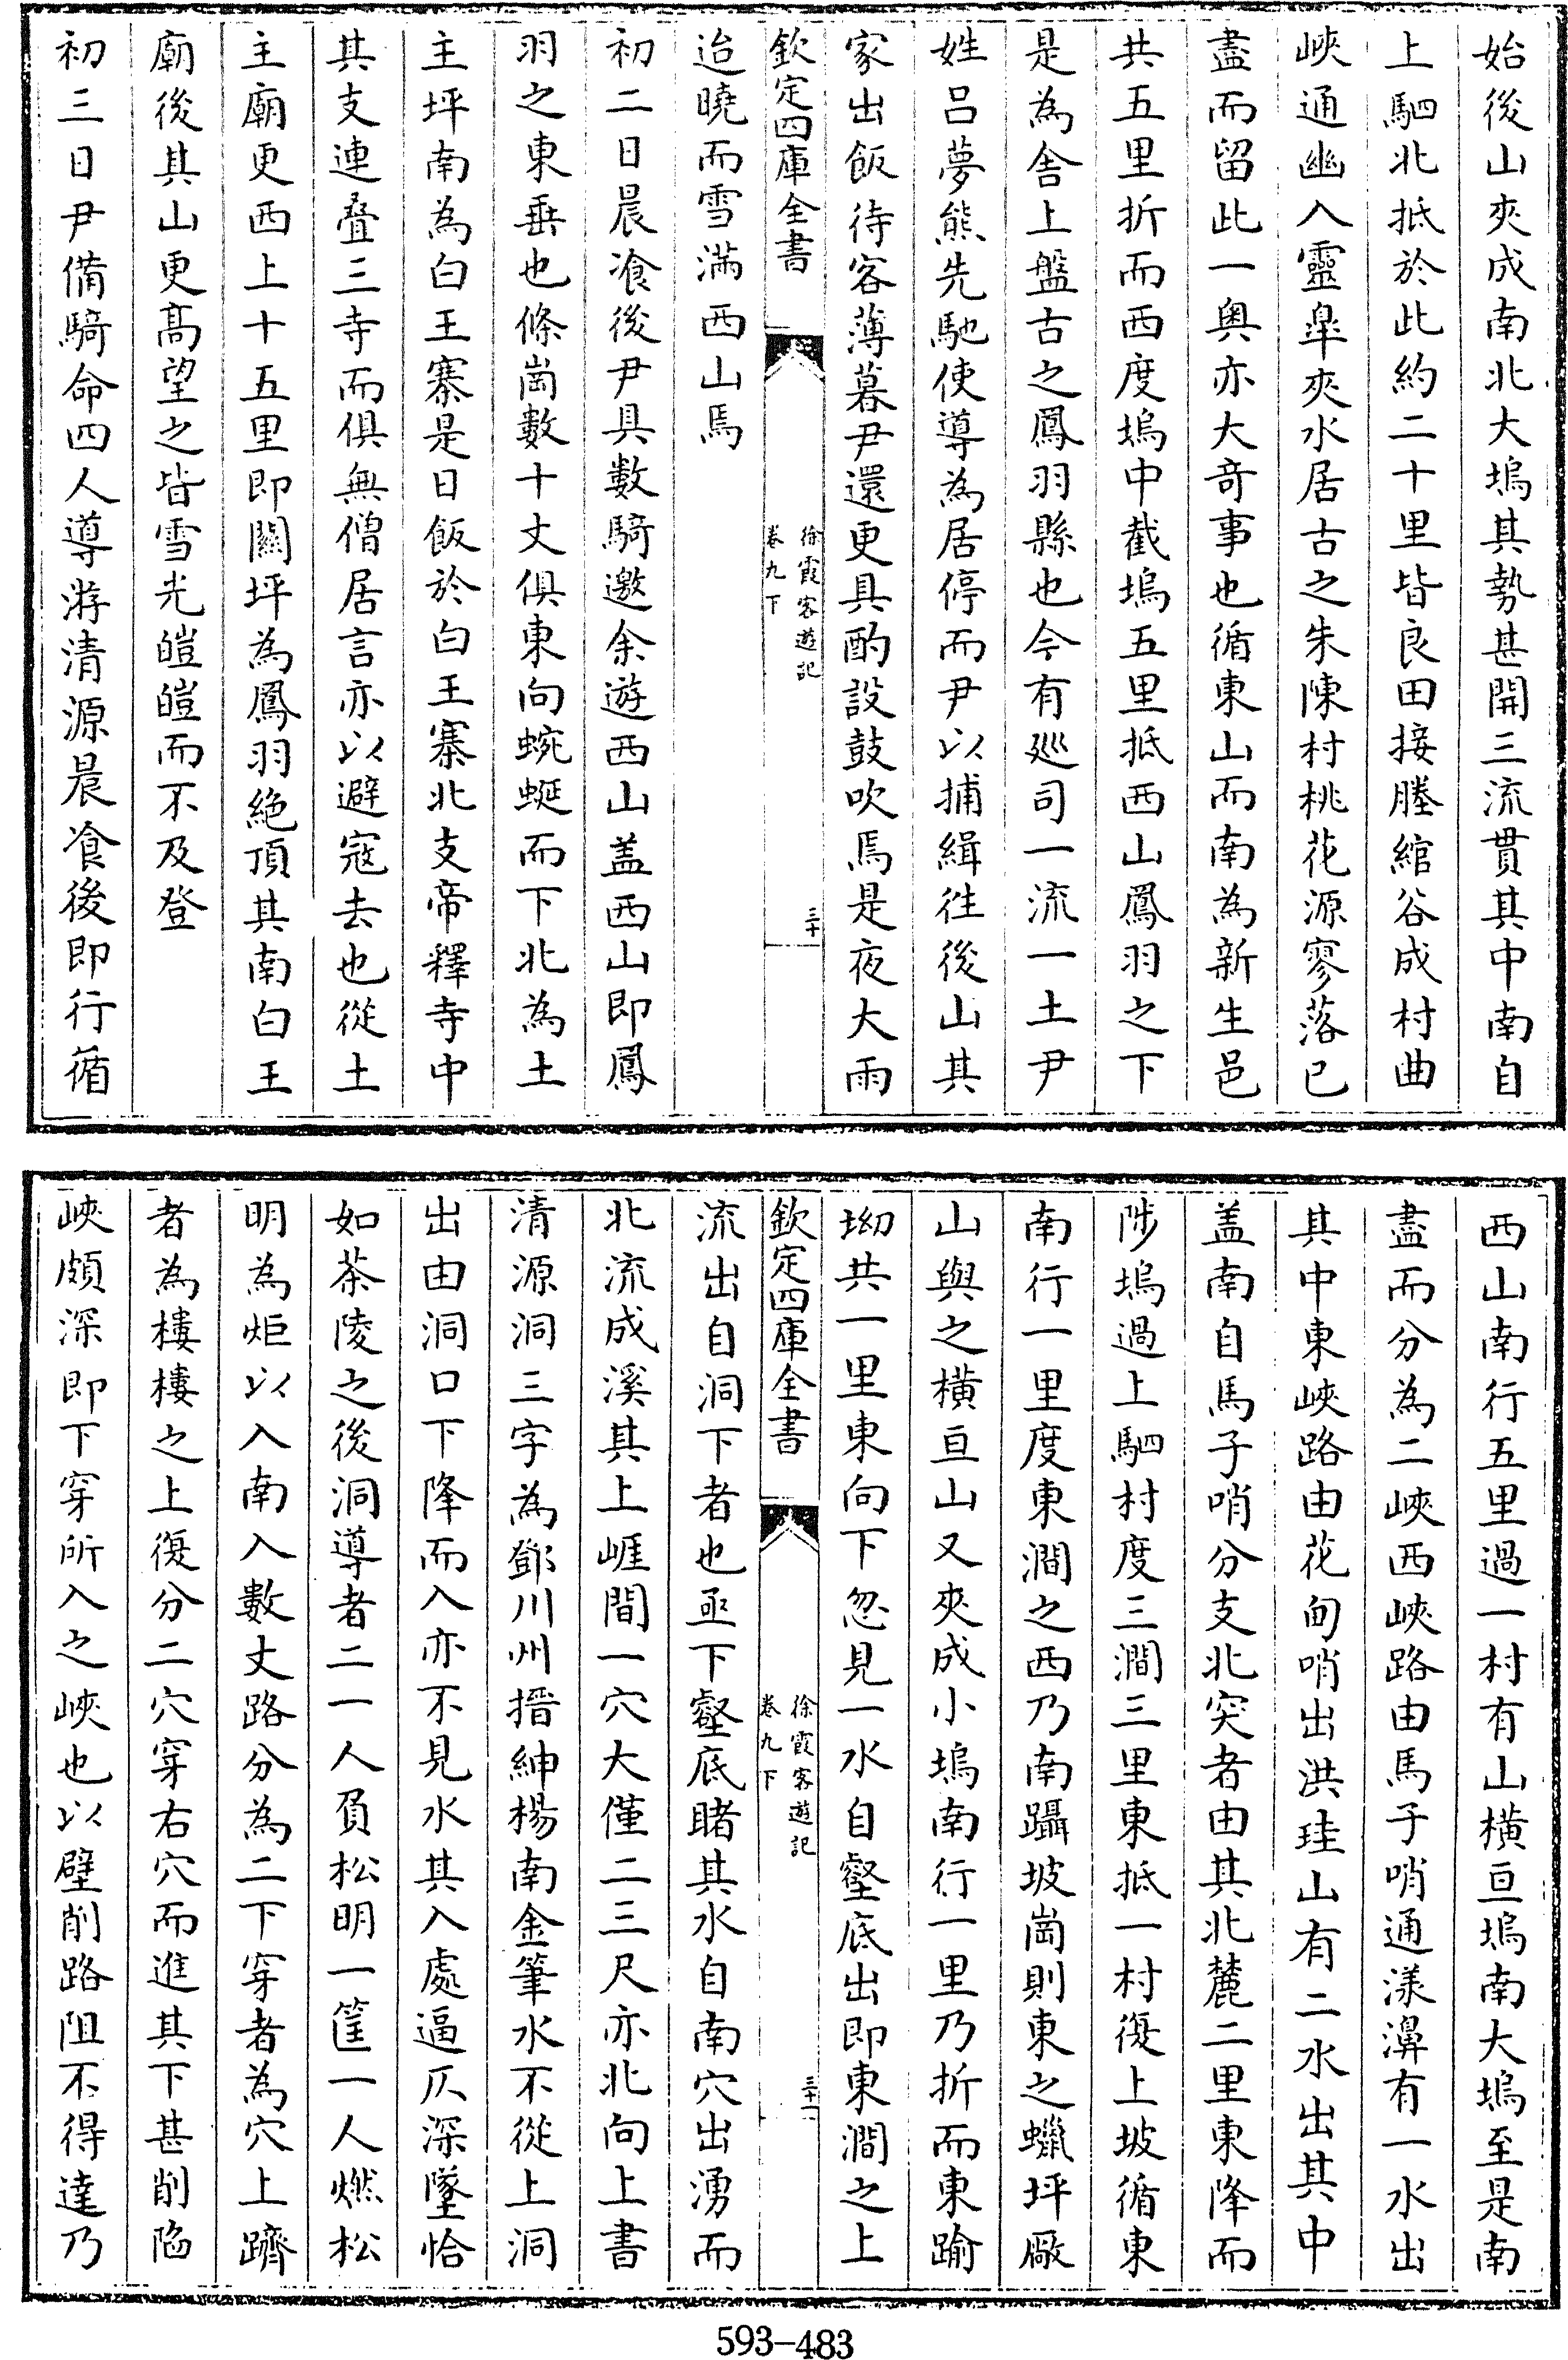 始後山夾成南北大塢其勢甚開三流貫其中南自
上駟北抵於此約二十里皆良田接塍綰谷成村曲
峽通幽入靈臯夾水居古之朱陳村桃花源寥落已
盡而留此一奥亦大奇事也循東山而南為新生邑
共五里折而西度塢中截塢五里抵西山鳳羽之下
是為舎上盤古之鳳羽縣也今有廵司一流一土尹
姓吕夢熊先馳使導為居停而尹以捕緝往後山其
家出飯待客薄暮尹還更具酌設鼓吹焉是夜大雨
欽定四庫全書
徐霞客遊記
卷九下
三十
迨曉而雪滿西山焉
初二日晨飡後尹具數騎邀余遊西山盖西山即鳳
羽之東垂也條崗數十丈俱東向蜿蜒而下北為土
主坪南為白王寨是日飯於白王寨北支帝釋寺中
其支連疊三寺而俱無僧居言亦以避寇去也從土
主廟更西上十五里即關坪為鳳羽絶頂其南白王
廟後其山更髙望之皆雪光皚皚而不及登
初三日尹備騎命四人導游清源晨飡後即行循
西山南行五里過一村有山橫亘塢南大塢至是南
盡而分為二峽西峽路由馬子哨通漾濞有一水出
其中東峽路由花甸哨出洪珪山有二水出其中
盖南自馬子哨分支北突者由其北麓二里東降而
陟塢過上駟村度三澗三里東抵一村復上坡循東
南行一里度東澗之西乃南躡坡崗則東之蠟坪厰
山與之橫亘山又夾成小塢南行一里乃折而東踰
坳共一里東向下忽見一水自壑底出即東澗之上
欽定四庫全書
徐霞客遊記
卷九下
三十一
流出自洞下者也亟下壑底睹其水自南穴出湧而
北流成溪其上崕間一穴大僅二三尺亦北向上書
清源洞三字為鄧川州搢紳楊南金筆水不從上洞
出由洞口下降而入亦不見水其入處逼仄深墜恰
如茶陵之後洞導者二一人負松明一筐一人燃松
明為炬以入南入數丈路分為二下穿者為穴上躋
者為樓樓之上復分二穴穿右穴而進其下甚削陷
峽頗深即下穿所入之峽也以壁削路阻不得達乃
593-483